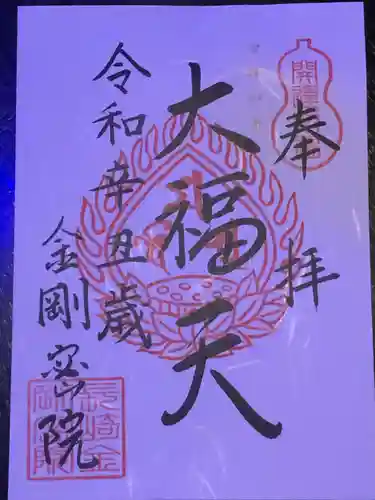 奉拝
開運
大福天
令和辛丑歳
金剛密院
長崎金